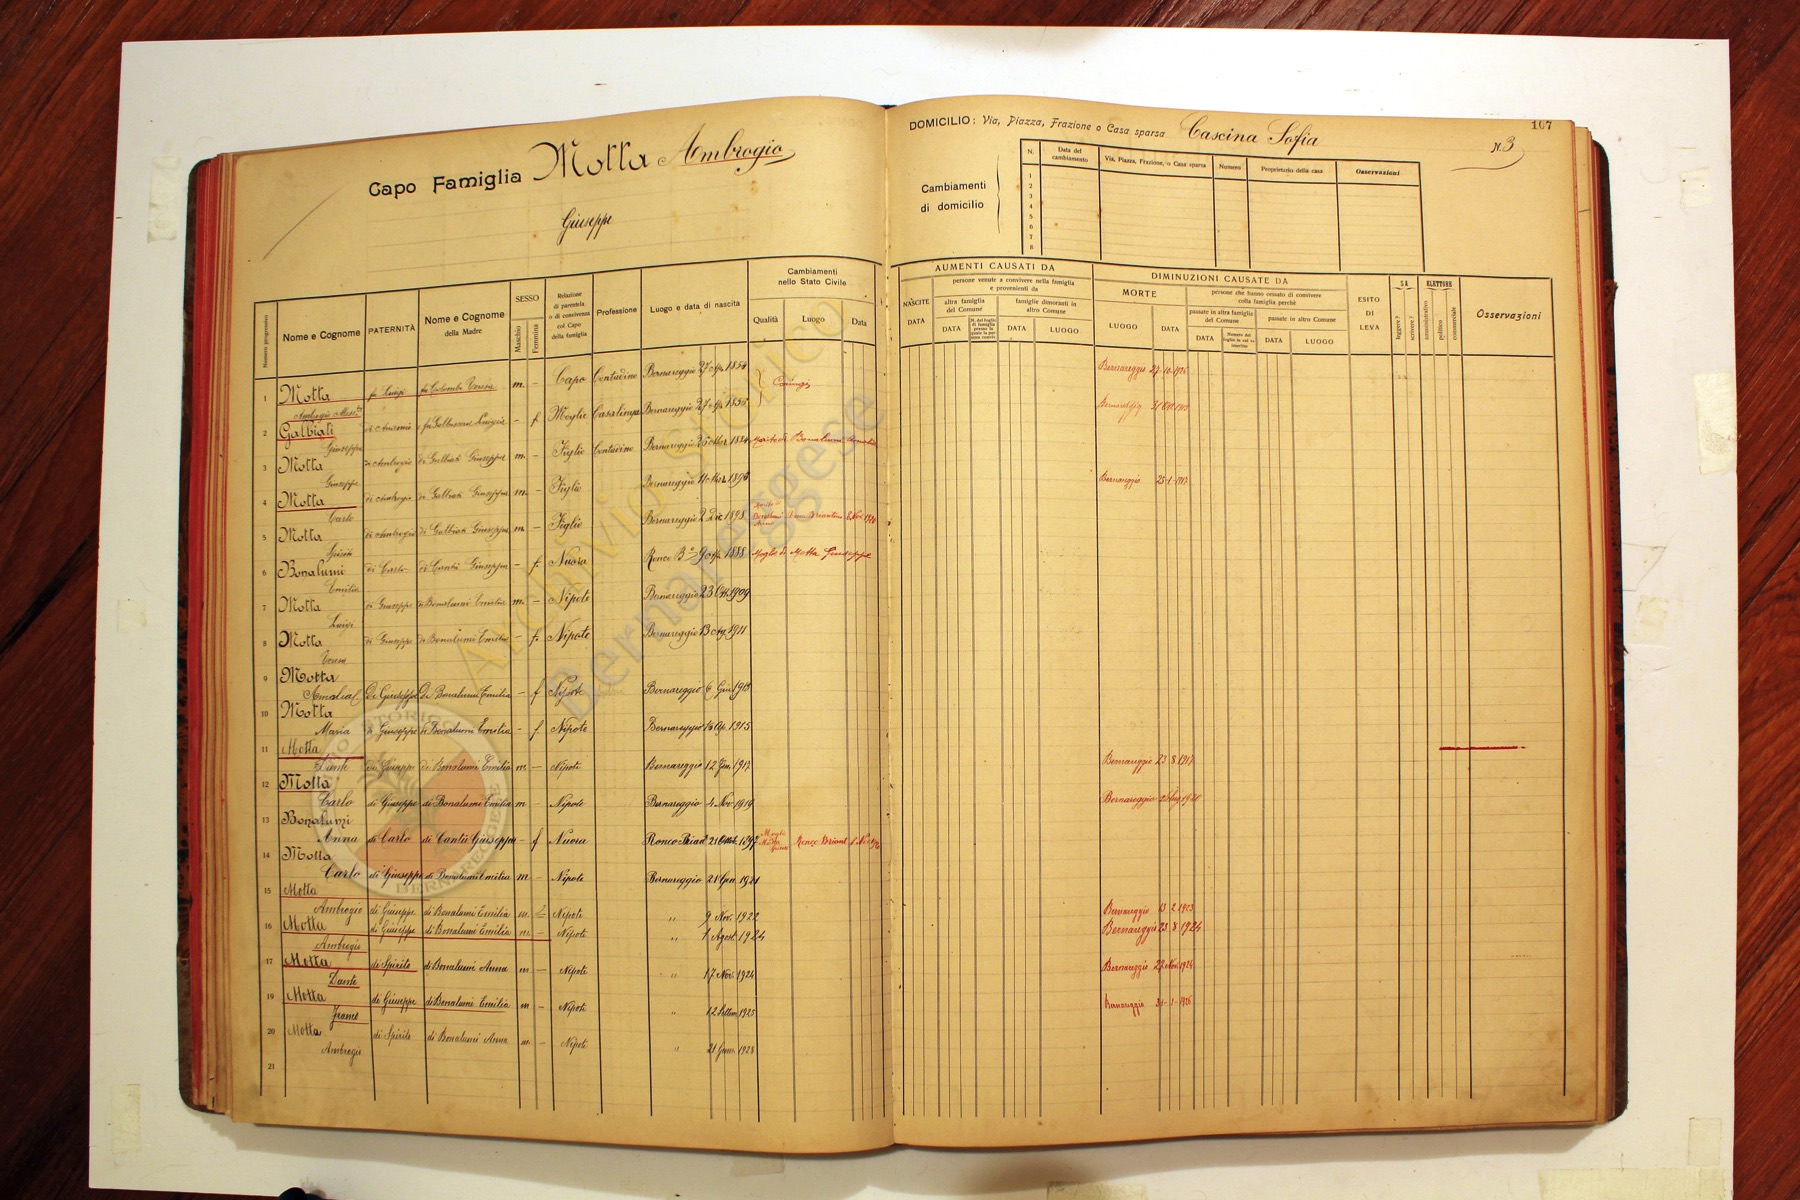 Capo Famiglia Motta Ambrogio
Giuseppe
DOMICILIO: Via, Piazza, Frazione o Casa sparsa Cascina Sofia
N. 3
107
Cambiamenti di domicilio
N. Data del cambiamento Via, Piazza, Frazione, o Casa sparsa Numero Proprietario della casa Osservazioni
1
2
3
4
5
6
7
8
Numero progressivo
Nome e Cognome
PATERNITÀ
Nome e Cognome della Madre
SESSO
Maschio
Femmina
Relazione di parentela o di convivenza col Capo della famiglia
Professione
Luogo e data di nascita
Cambiamenti nello Stato Civile
Qualità Luogo Data
AUMENTI CAUSATI DA
NASCITE
DATA
persone venute a convivere nella famiglia e provenienti da
altra famiglia del Comune
DATA
famiglie dimoranti in altro Comune
DATA LUOGO
DIMINUZIONI CAUSATE DA
MORTE
LUOGO DATA
persone che hanno cessato di convivere colla famiglia perchè
passate in altra famiglia del Comune
DATA
passate in altro Comune
DATA LUOGO
ESITO DI LEVA
SA
leggere?
scrivere?
ELETTORE
amministrativo
politico
commerciale
Osservazioni
1 Motta fu Luigi fu Colomba Verena m. – Capo Contadino Bernareggio 27 1854 Coniugi Bernareggio 27-10-1926
Ambrogio
2 Galbiati fu Galbussera Luigia – f. Moglie Casalinga Bernareggio 27 1855
Giuseppa
3 Motta di Ambrogio di Galbiati Giuseppa m. – Figlio Contadino Bernareggio 1884 Marito di Bonalumi
Giuseppe
4 Motta di Ambrogio di Galbiati Giuseppa m. – Figlio Bernareggio 11 Mar. 1896 Bernareggio 25-1-1917
Carlo
5 Motta di Ambrogio di Galbiati Giuseppa m. – Figlio Bernareggio 2 Dic. 1898 Bonalumi Anna 8 Nov. 1920
Spirito
6 Bonalumi di Carlo di Cantù Giuseppa – f. Nuora Ronco 1888 Moglie di Motta Giuseppe
Emilia
7 Motta di Giuseppe di Bonalumi Emilia m. – Nipote Bernareggio 23 Ott. 1909
Luigi
8 Motta di Giuseppe di Bonalumi Emilia – f. Nipote Bernareggio 13 1911
Verena
9 Motta
Amalia Di Giuseppe Di Bonalumi Emilia – f Nipote Bernareggio 6 Giu. 1913
10 Motta
Maria di Giuseppe di Bonalumi Emilia – f Nipote Bernareggio 1915
11 Motta
Dante di Giuseppe di Bonalumi Emilia m. – Nipote Bernareggio 12 1917 Bernareggio 23 8 1917
12 Motta
Carlo di Giuseppe di Bonalumi Emilia m – Nipote Bernareggio 4 Nov. 1919 Bernareggio 1920
13 Bonalumi
Anna di Carlo di Cantù Giuseppa – f Nuora Ronco Brian. 21 1897 Moglie Motta Spirito Ronco Briant. 8 Nov. 1920
14 Motta
Carlo di Giuseppe di Bonalumi Emilia m – Nipote Bernareggio 21 Gen. 1921
15 Motta
Ambrogio di Giuseppe di Bonalumi Emilia m. Nipote " 9 Nov. 1922 Bernareggio 13 2 1923
16 Motta di Giuseppe di Bonalumi Emilia m. – Nipote " 1 Agost. 1924 Bernareggio 23 8 1924
Ambrogio
17 Motta di Spirito di Bonalumi Anna m – Nipote " 17 Nov. 1924 Bernareggio 22 Nov. 1924
Dante
19 Motta di Giuseppe di Bonalumi Emilia m – Nipote " 12 Settem. 1925 Bernareggio 1926
Franco
20 Motta di Spirito di Bonalumi Anna m. – Nipote " 21 1928
Ambrogio
21
Archivio Storico Bernareggese